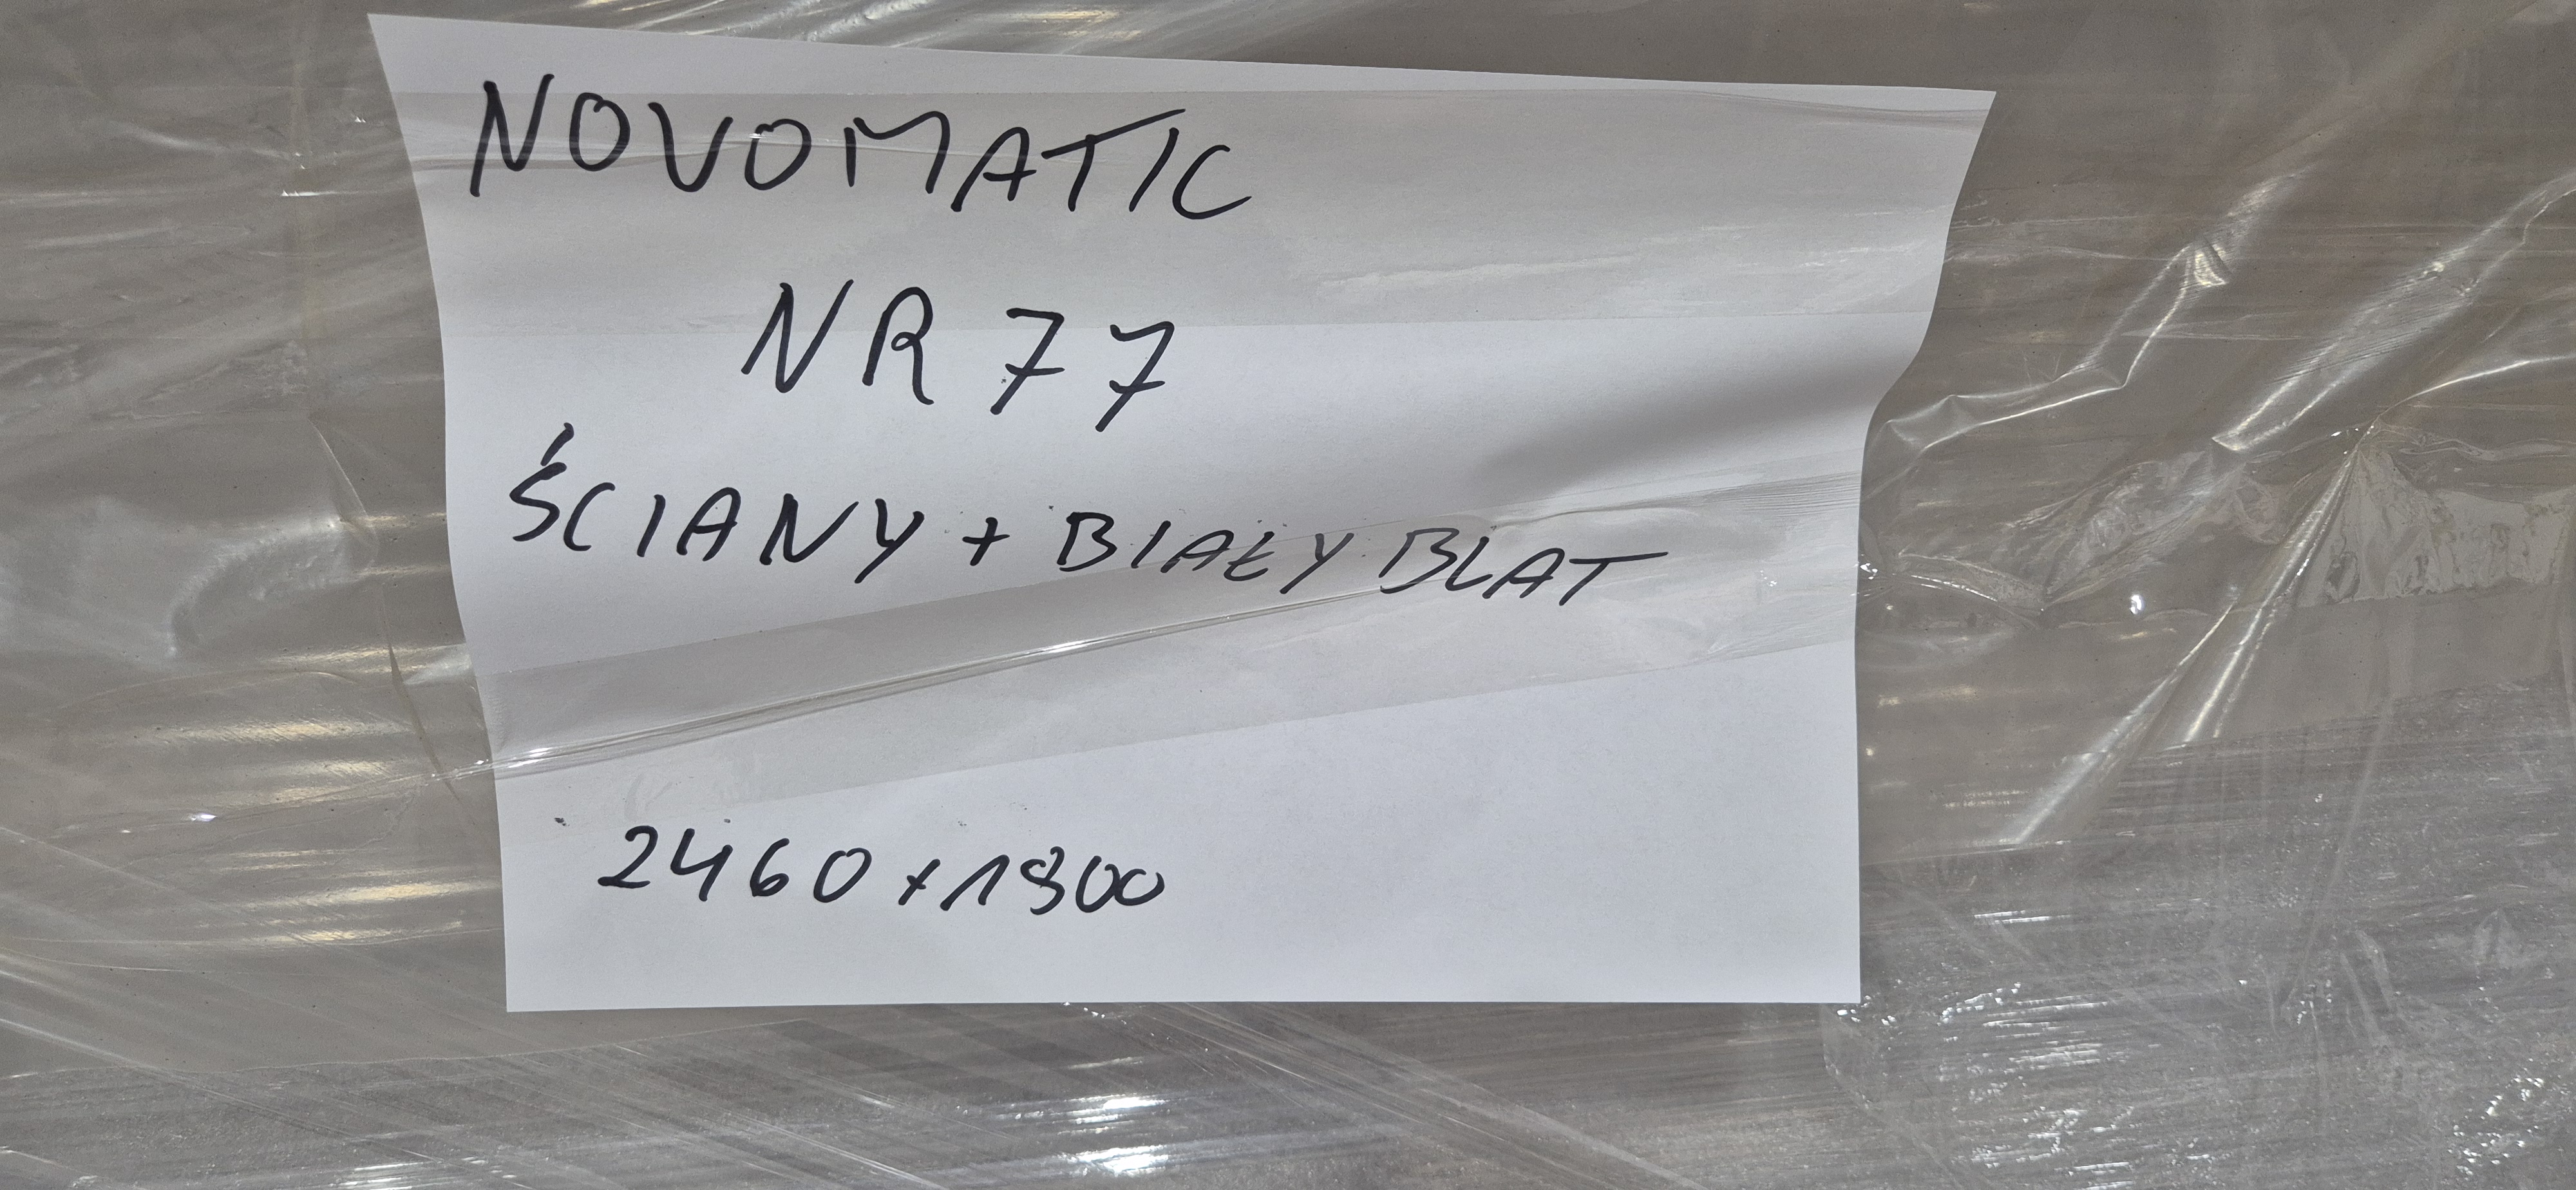 NOVOMATIC
NR 77
ŚCIANY + BIAŁY BLAT
2460 x 1900